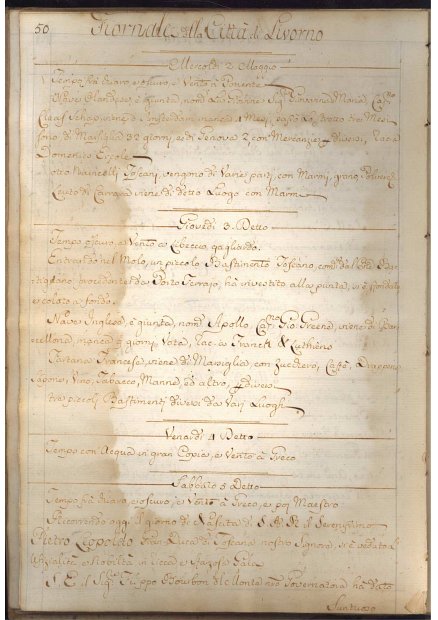 50 Giornale della Città di Livorno
Mercoldì 2 Maggio
Tempo frà chiaro, e oscuro, e Vento à Ponente
Nave Olandese, è giunta, nomᵃ La Giovane Sigᵃ Giovanna Maria, Capⁿᵒ
Claas Schap, viene d'Amsterdam manca 2 Mesi, passò Lo Stretto tre Mesi
sono, di Marsiglia 32 giorni, e di Genova 2, con Mercanzie, diversi, racᵃ
Domenico
otto Navicelli Toscani, vengono di Varie parti, con Marmi, grano, Polvere
Leuto di Carrara viene di detto Luogo con Marmi
Giovedì 3. Detto
Tempo oscuro, e Vento à Libeccio, gagliardo.
Entrando nel Molo, un piccolo Bastimento Toscano, comᵗᵒ dal
procedente da Porto Ferrajo, hà investito alla punta, si è sfondato
e colato a fondo.
Nave Inglese, è giunta, nomᵃ Apollo, Capⁿᵒ Gio Greene, viene di Bar-
cellona, manca 9 giorni Vota, racᵃ à Franck &
Tartana Francese, viene di Marsiglia, con Zucchero, Caffè, Drapperie
Sapone, Vino, Tabacco, Manna, ed altro, diversi
tre piccoli Bastimenti diversi da Varj Luoghi
Venerdì 4 Detto
Tempo con Acqua in gran Copia, e Vento à Greco
Sabbato 5 detto
Tempo frà chiaro, e oscuro, e Vento à Greco, e poi Maestro
Ricorrendo oggi il giorno di Nascita di S. A. R. il Serenissimo
Pietro Leopoldo Gran Duca di Toscana nostro Signore, si è veduta l'
Uffizialità e Nobiltà in ricca e sfarzosa Gala
S. E. il Sigʳ Filippo Bourbon del Monte nrõ Governatore hà dato
Suntuoso